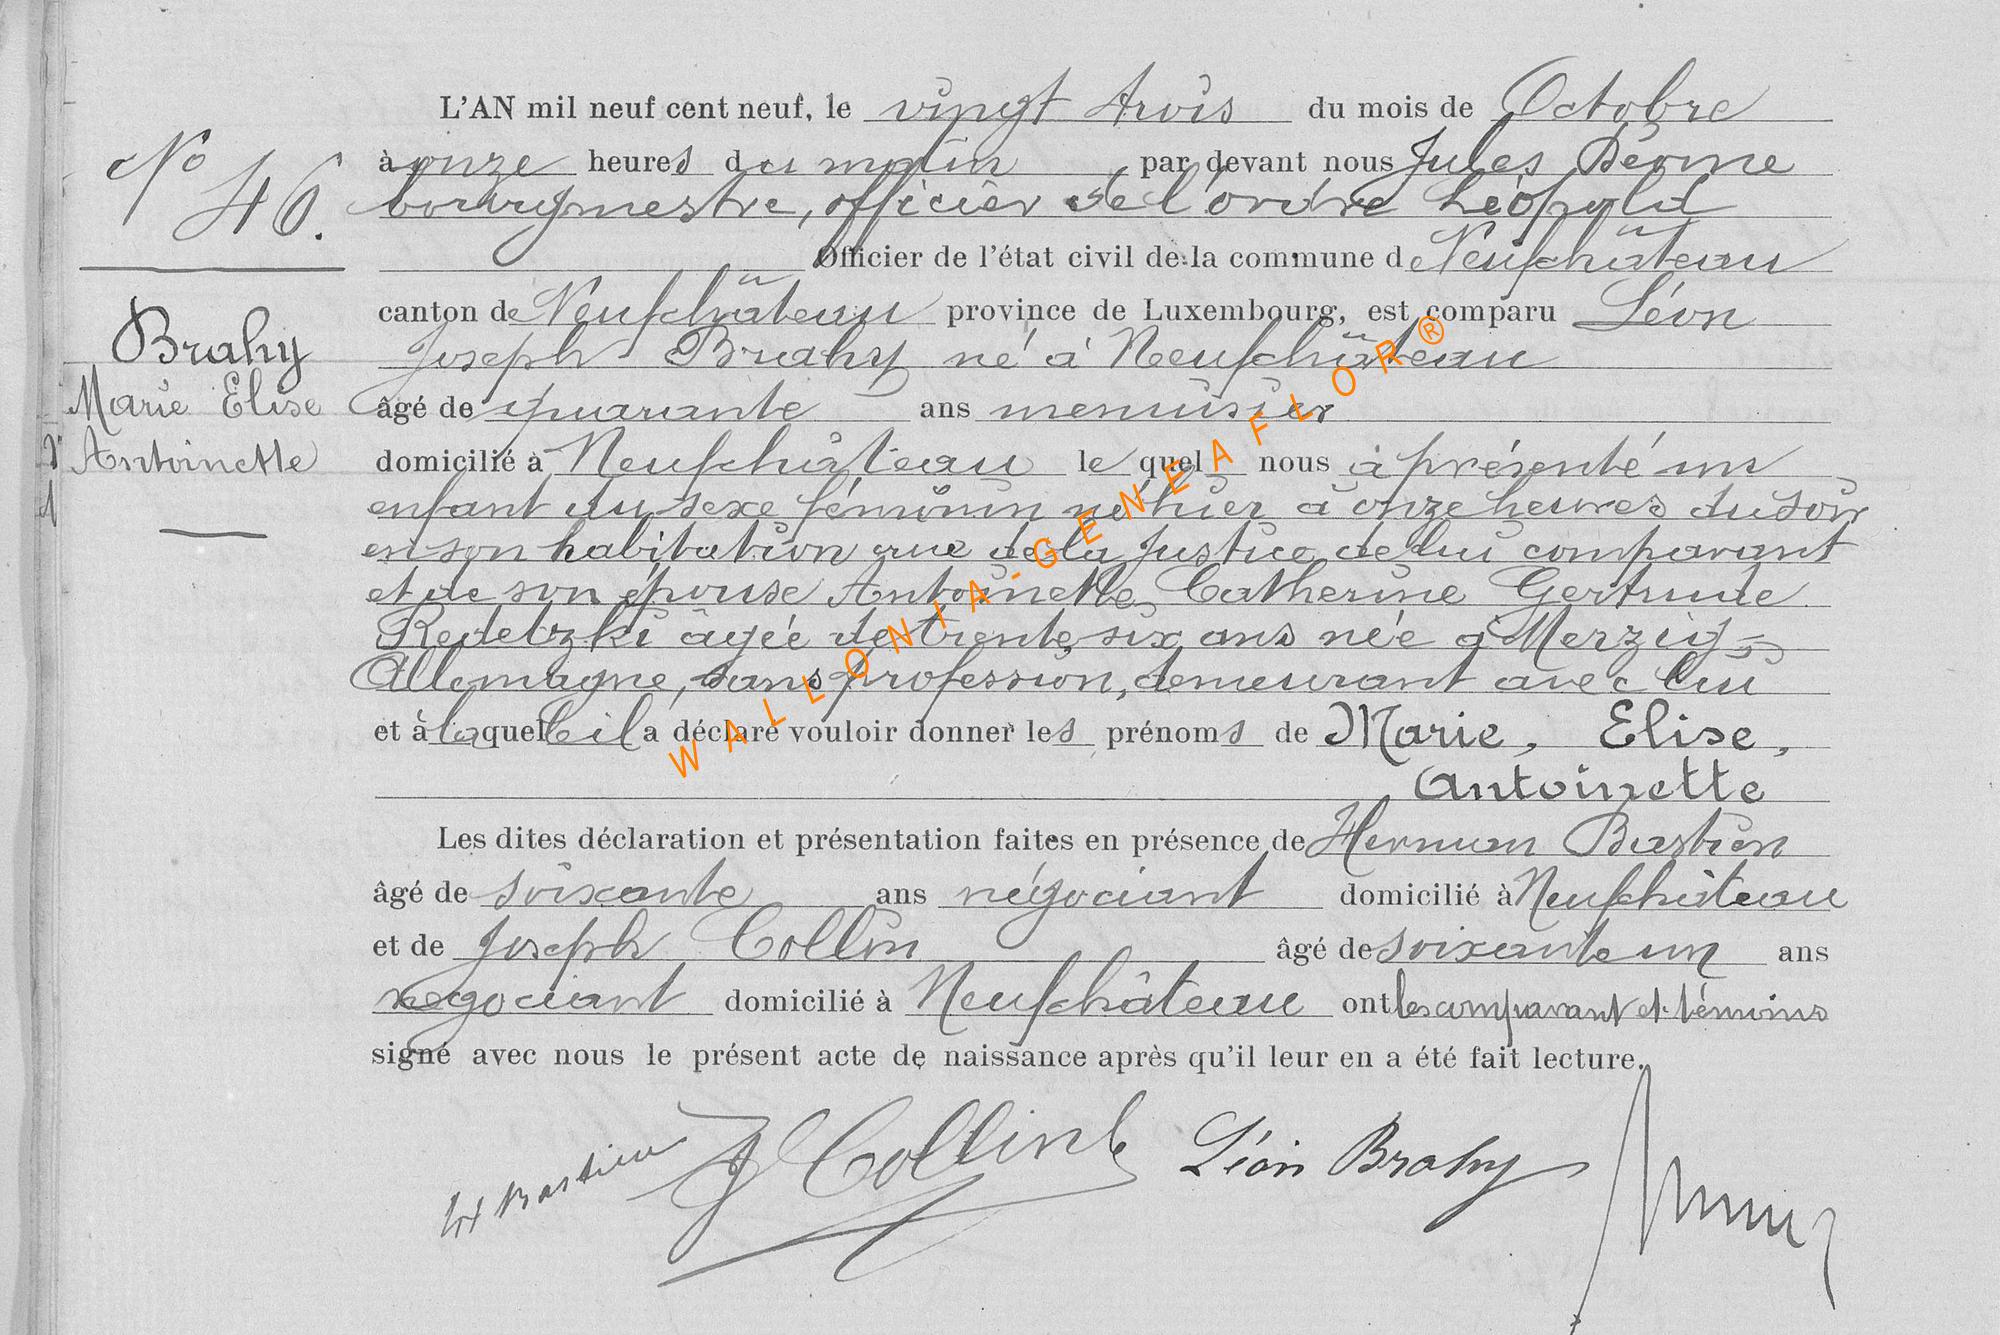 L'AN mil neuf cent neuf, le vingt trois du mois de Octobre
à onze heures du matin par devant nous Jules
bourgmestre, officier de l'ordre Léopold
Officier de l'état civil de la commune de Neufchâteau
canton de Neufchâteau province de Luxembourg, est comparu Léon
Joseph Brahy né à Neufchâteau
âgé de quarante ans menuisier
domicilié à Neufchâteau lequel nous à présenté un
enfant du sexe féminin né hier à onze heures du soir
en son habitation rue de la Justice de lui comparant
et de son épouse Antoinette Catherine Gertrude
Redetzki âgée de trente six ans née à Merzig
Allemagne, sans profession, demeurant avec lui
et à laquelle il a déclaré vouloir donner les prénoms de Marie, Elise,
Antoinette
Les dites déclaration et présentation faites en présence de Herman Bastien
âgé de soixante ans négociant domicilié à Neufchâteau
et de Joseph Collin âgé de soixante un ans
négociant domicilié à Neufchâteau ont les comparant et témoins
signé avec nous le présent acte de naissance après qu'il leur en a été fait lecture.
No
46.
Brahy
Marie Elise
Antoinette
H Bastien J Collin Léon Brahy
WALLONIA-GENEAFLOR®